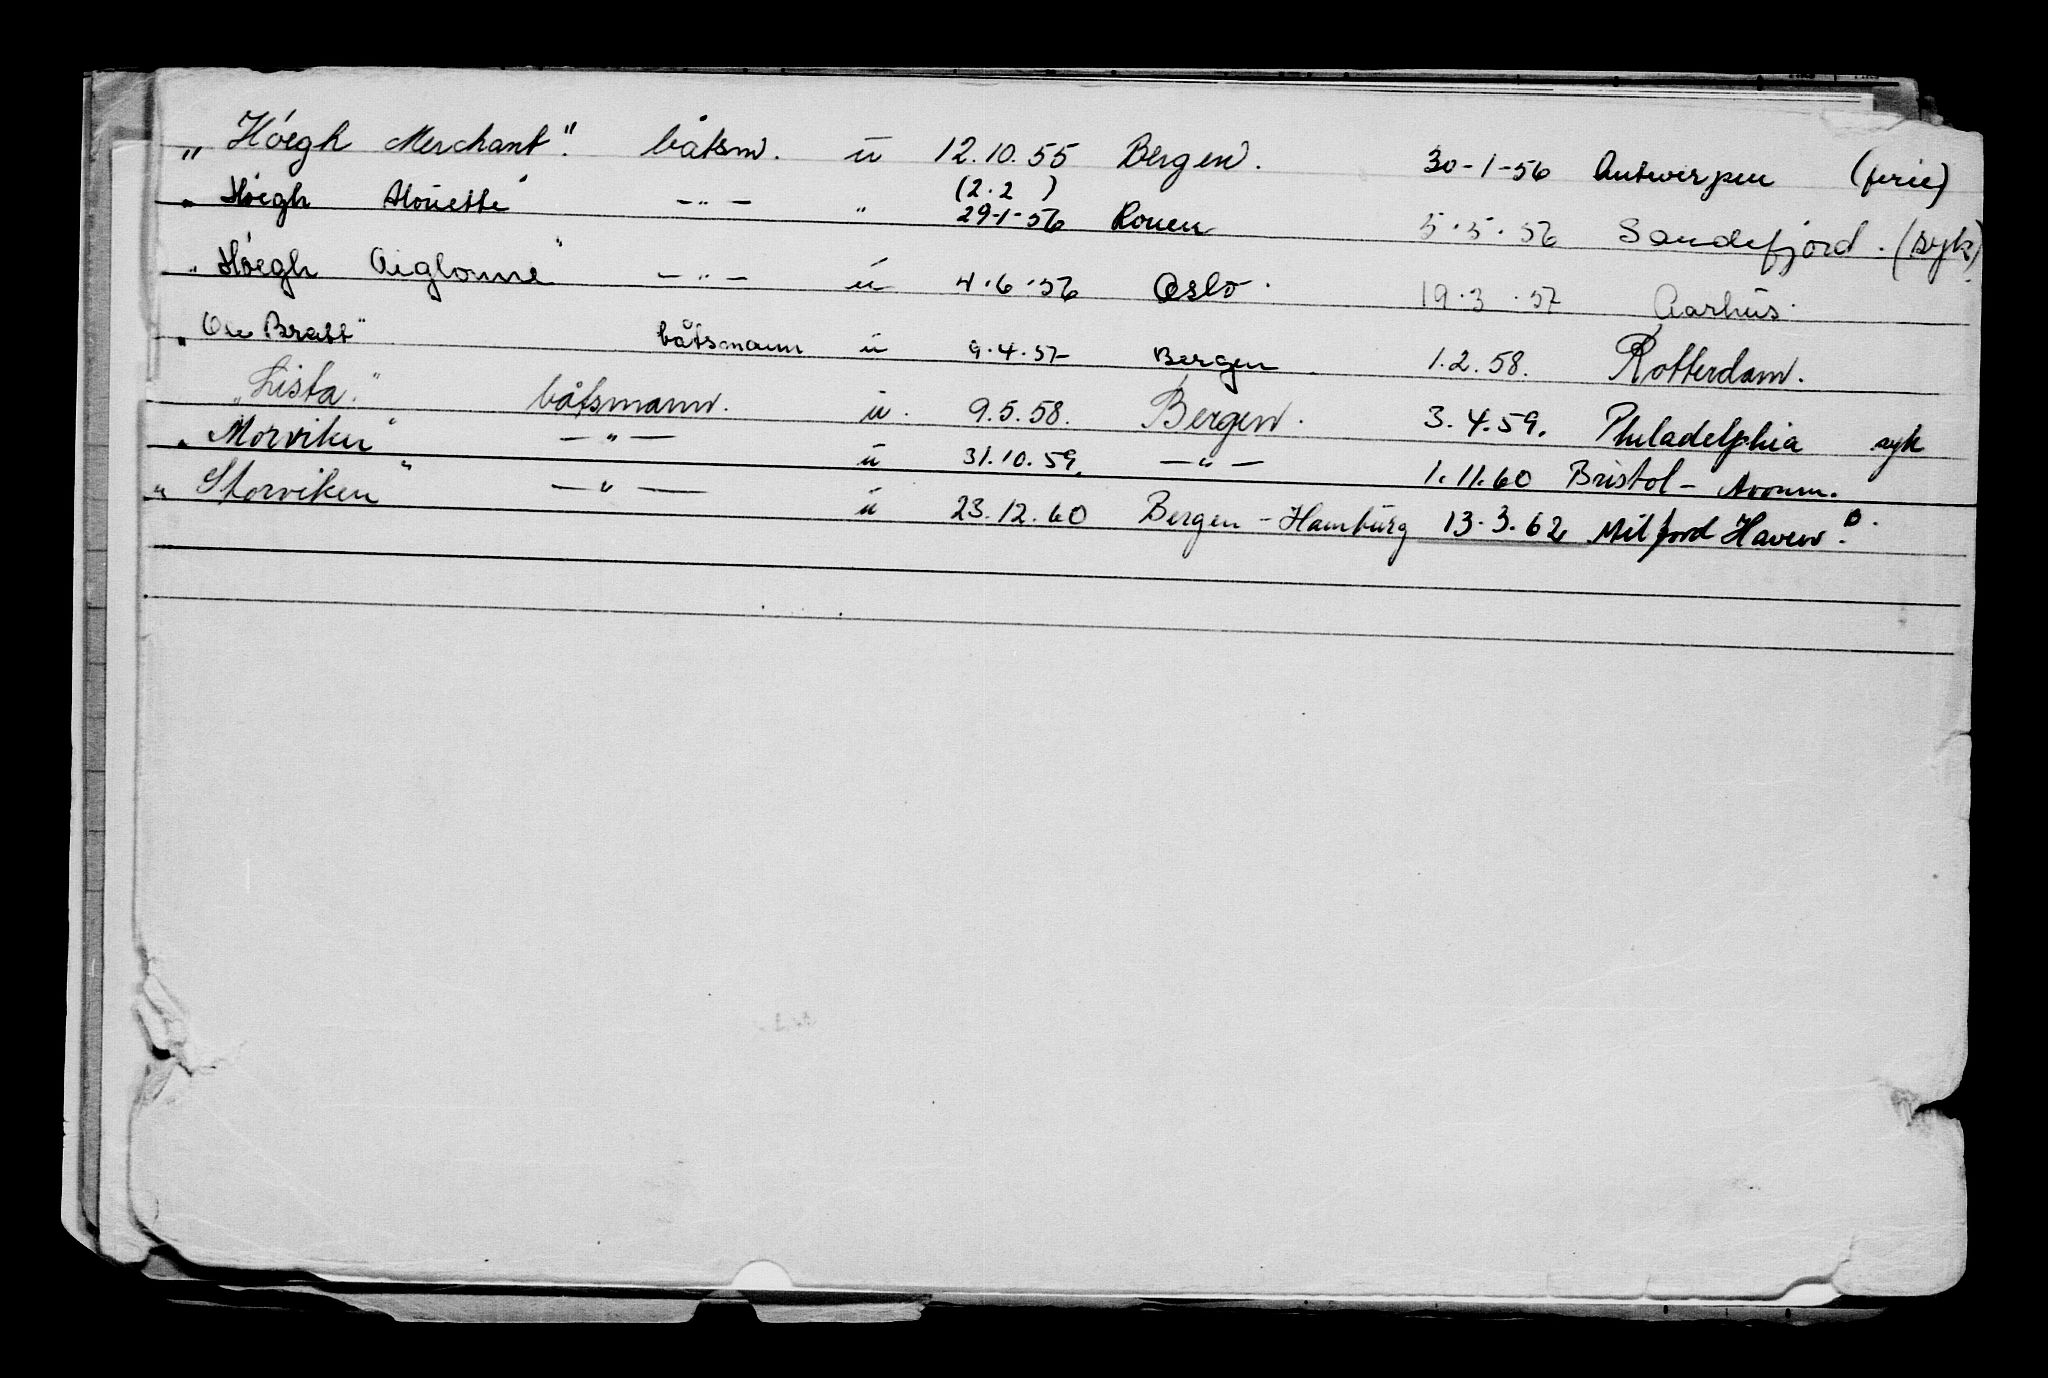 „Høegh Merchant". båtsm. u 12.10.55 Bergen. 30-1-56 Antwerpen (ferie)
(2.2 )
„Høegh Alouette" -"- " 29-1-56 Rouen 5.5.56 Sandefjord. (syk)
„Høegh Aiglonne" -"- u 4.6.56 Oslo. 19.3.57 Aarhus.
„Ole Bratt" båtsmann u 9.4.57 Bergen 1.2.58. Rotterdam.
„Lista." båtsmann. u. 9.5.58. Bergen. 3.4.59. Philadelphia syk
„Morviken" -"- u 31.10.59. -"- 1.11.60 Bristol - Avonm.
„Storviken" -"- u 23.12.60 Bergen - Hamburg 13.3.62 Milford Haven.